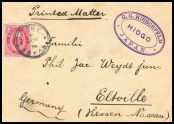 Printed Matter
C. C. HIRSCHFELD
HIOGO
JAPAN
Familie
Phil Jac Weydt jun.
Eltville
Germany
(Hessen-Nassau)